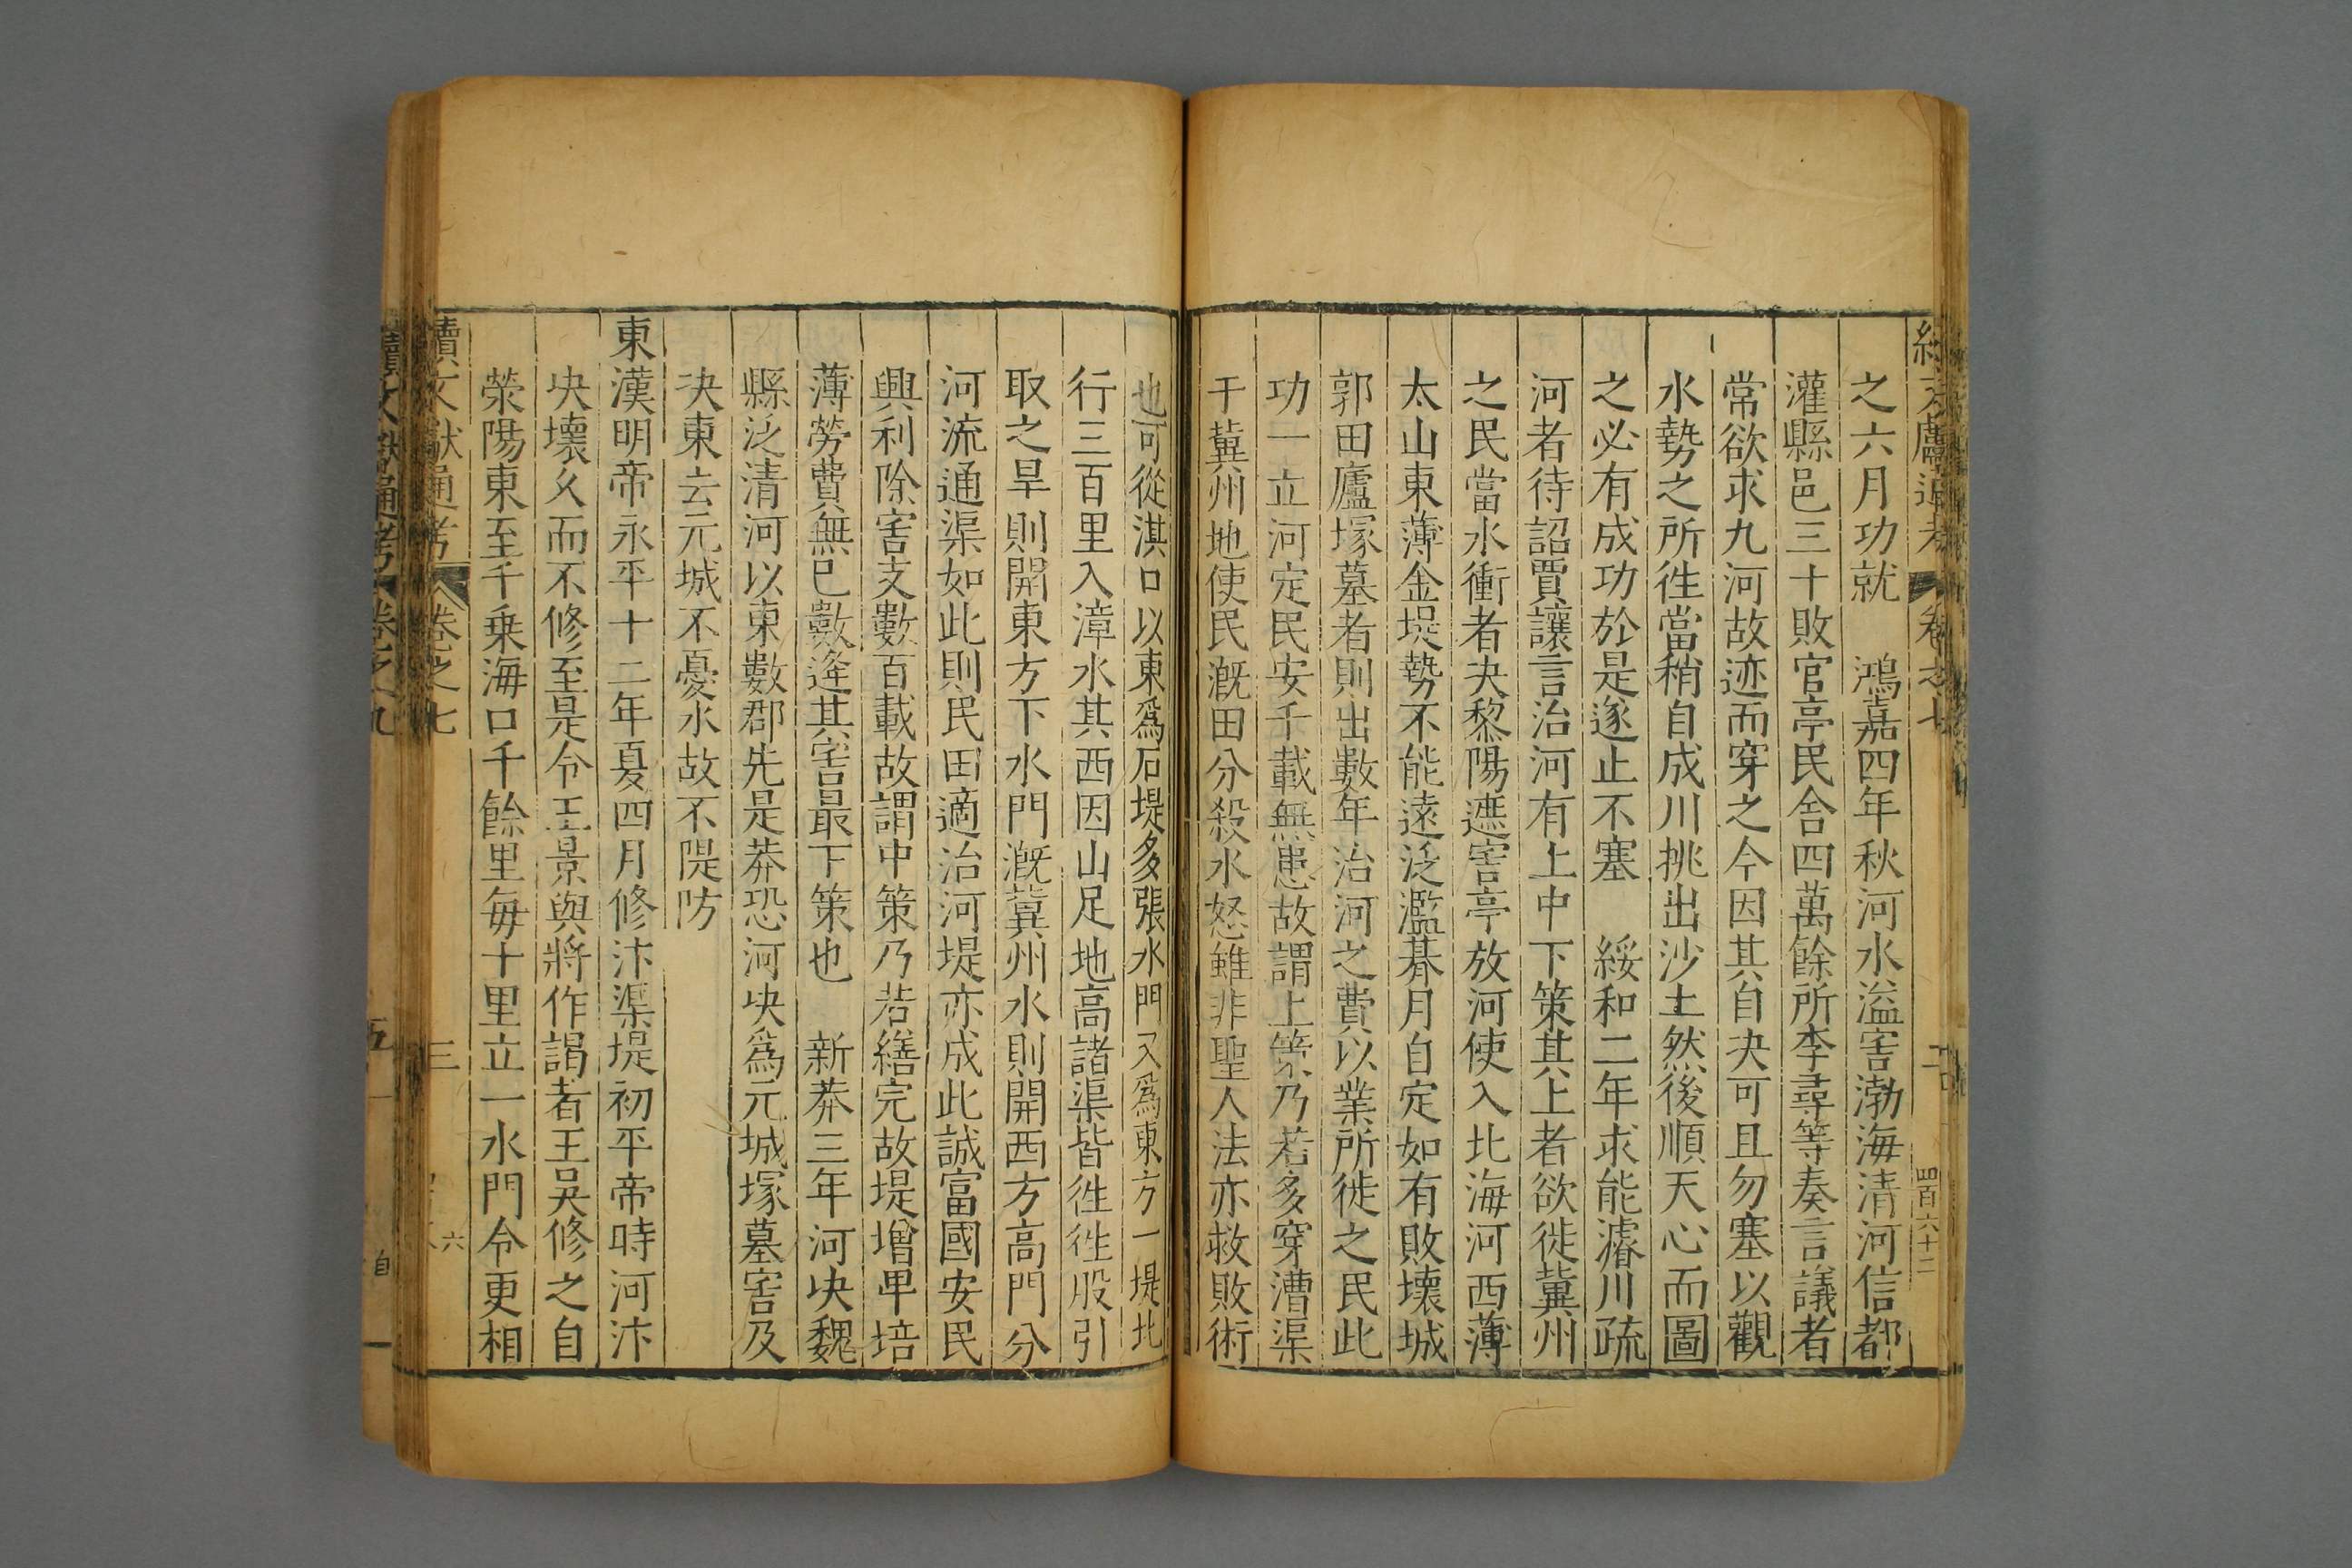 之六月功就　鴻嘉四年秋河水溢害渤海清河信都
灌縣邑三十敗官亭民舍四萬餘所李尋等奏言議者
常欲求九河故迹而穿之今因其自决可且勿塞以觀
水勢之所徃當稍自成川挑出沙土然後順天心而圖
之必有成功於是遂止不塞　綏和二年求能濬川疏
河者待詔賈讓言治河有上中下策其上者欲徙冀州
之民當水衝者决黎陽遮害亭放河使入北海河西薄
太山東薄金堤勢不能遠泛濫朞月自定如有敗壞城
郭田廬塚墓者則出數年治河之費以業所徙之民此
功一立河定民安千載無患故謂上策乃若多穿漕渠
于冀州地使民溉田分殺水怒雖非聖人法亦救敗術
也可從淇口以東爲石堤多張水門又爲東方一堤北
行三百里入漳水其西因山足地高諸渠皆徃徃股引
取之旱則開東方下水門溉冀州水則開西方高門分
河流通渠如此則民田適治河堤亦成此誠富國安民
興利除害支數百載故謂中策乃若繕完故堤增卑培
薄勞費無已數逢其害最下策也　新莽三年河决魏
縣泛清河以東數郡先是莽恐河决爲元城塚墓害及
决東去元城不憂水故不隄防
東漢明帝永平十二年夏四月修汴渠堤初平帝時河汴
决壞久而不修至是令王景與將作謁者王吳修之自
滎陽東至千乗海口千餘里每十里立一水門令更相
續文獻通考　卷之七　三
續文獻通考　卷之九　五